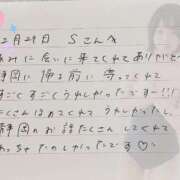 2月29日 Sさんへ
あみに会いに来てくれてありがとー
静岡に帰る前に寄ってくれて
すごくすごくうれしかったでーす!!!
たくさんほめてくれてうれしかったし、
静岡のお話たくさんしてくれて
めっちゃたのしかったです♡